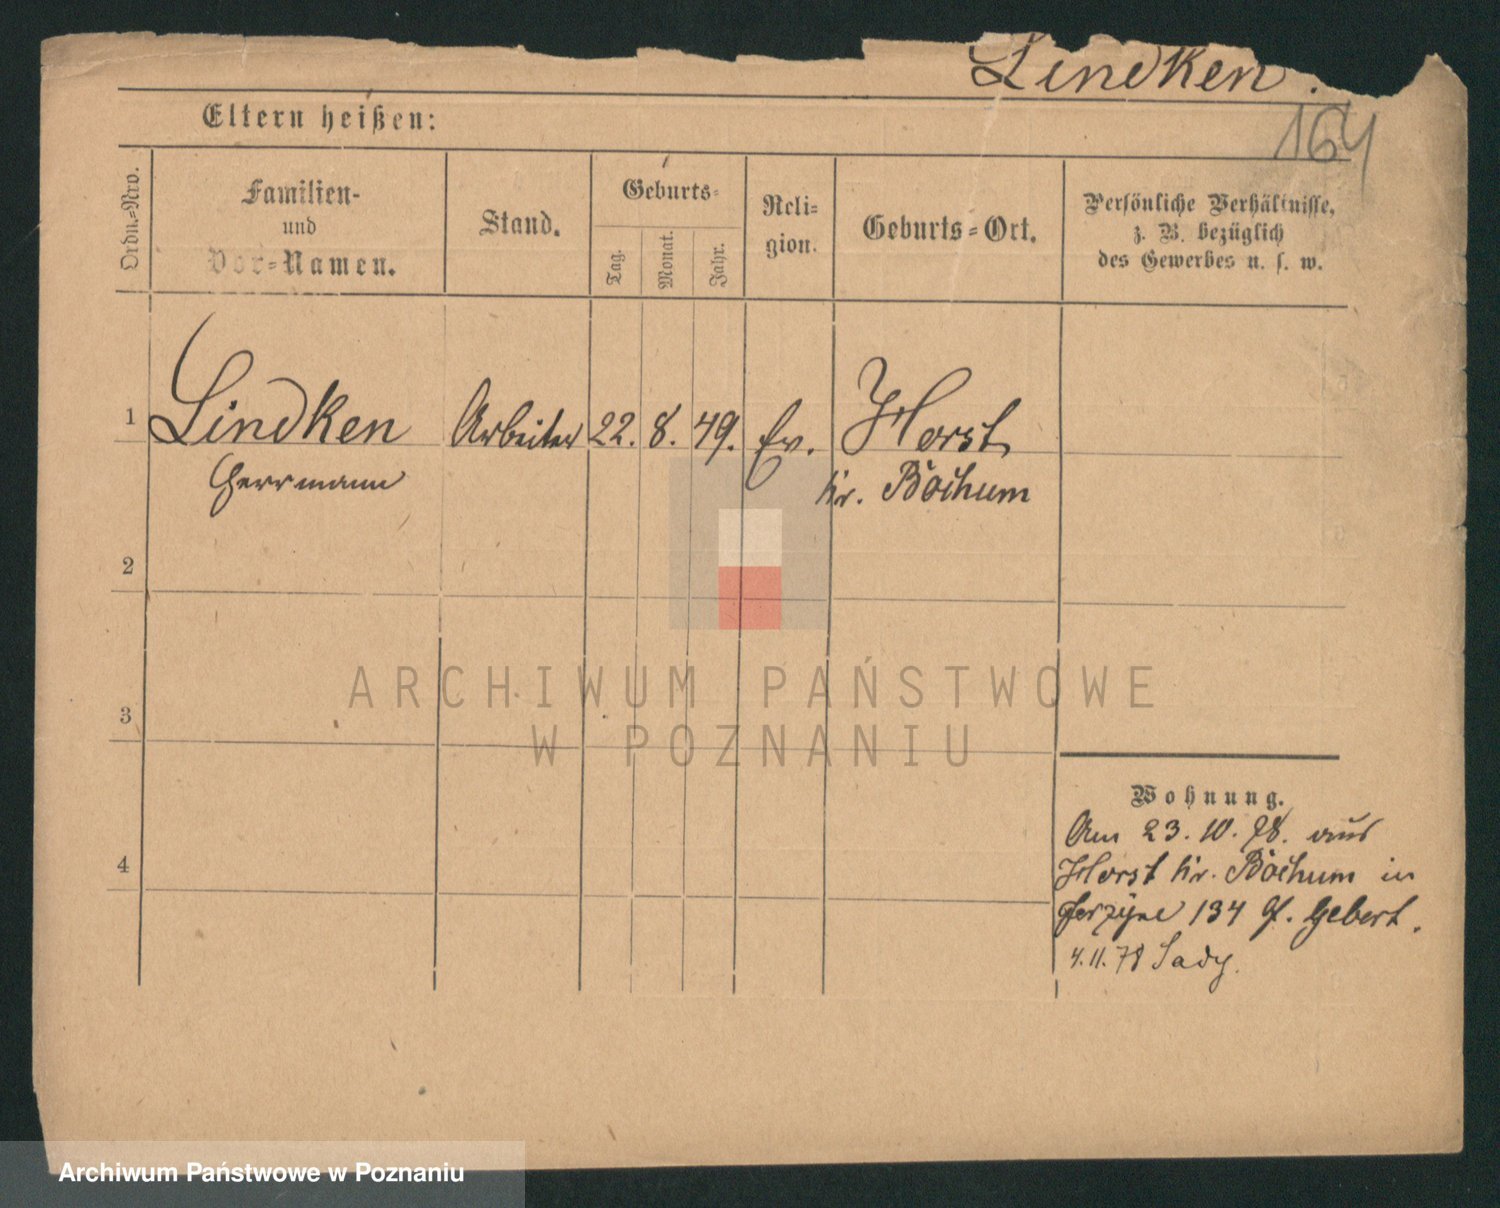 Lindken.
164
Eltern heißen:
Ordn.-Nro.
Familien-
und
Vor-Namen.
Stand.
Geburts-
Tag.
Monat.
Jahr.
Reli-
gion.
Geburts-Ort.
Persönliche Verhältnisse,
z. B. bezüglich
des Gewerbes u. s. w.
1
Lindken
Arbeiter
22.
8.
49.
Ev.
Horst
Herrmann
Kr. Bochum
2
3
4
ARCHIWUM PAŃSTWOWE
W POZNANIU
Wohnung.
Am 23. 10. 78. aus
Horst Kr. Bochum in
134 Gebert.
4.11.78
Archiwum Państwowe w Poznaniu